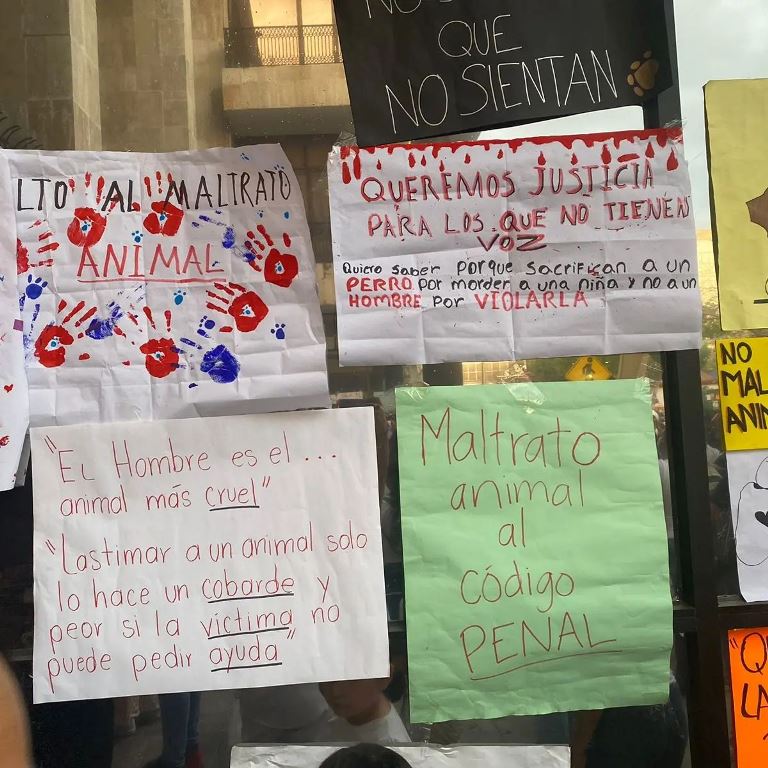 NO
QUE
NO SIENTAN
LTO AL MALTRATO
ANIMAL
QUEREMOS JUSTICIA
PARA LOS QUE NO TIENEN
VOZ
Quiero saber porque sacrifican a un
PERRO por morder a una niña y no a un
HOMBRE por VIOLARLA
"EL Hombre es el ...
animal más cruel"
"Lastimar a un animal solo
lo hace un cobarde y
peor si la victima no
puede pedir ayuda"
Maltrato
animal
al
código
PENAL
NO
MAL
ANIM
"QU
LA